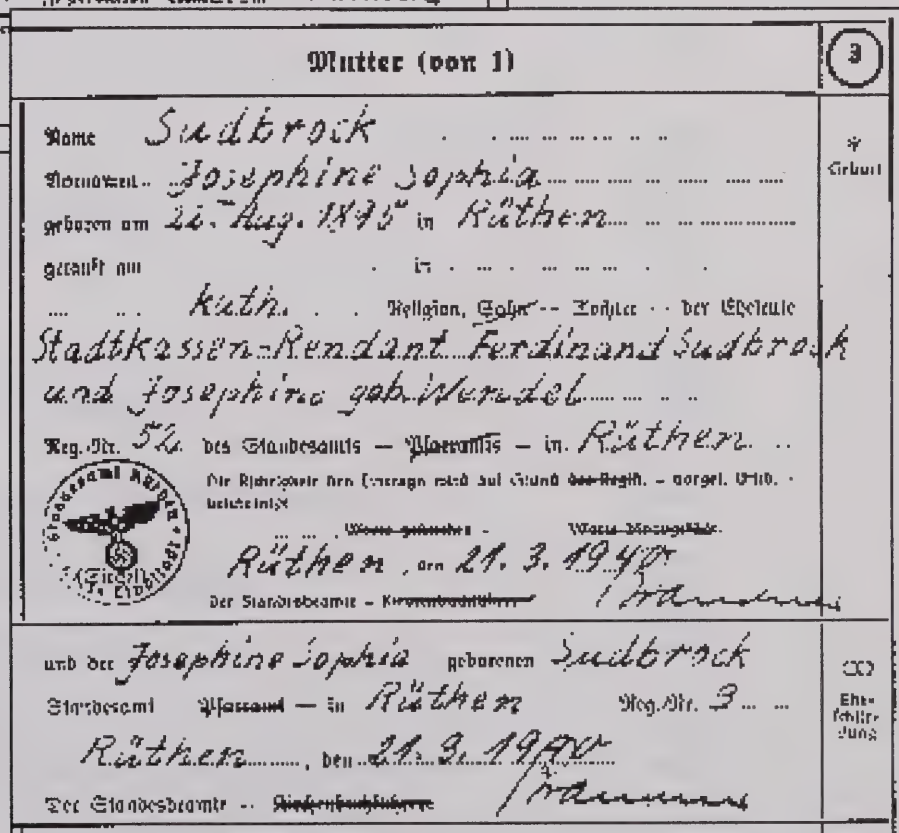 Mutter (von 1)
3
Name Sudbrock
* Geburt
Vornamen Josephine Sophia
geboren am Aug. 1895 in Rüthen
getauft am in
kath. Religion, Sohn -- Tochter -- der Eheleute
Stadtkassen-Rendant Ferdinand Sudbrock
und Josephine geb. Wendel
Reg.-Nr. 52 des Standesamts – Pfarramts – in Rüthen
Die Richtigkeit des Eintrags wird auf Grund des Regist. – vorgel. Urk. -
bescheinigt
Standesamt Rüthen
(Siegel)
Rüthen, den 21. 3. 1940
Der Standesbeamte – Kirchenbuchführer
und der Josephine Sophia geborenen Sudbrock
Standesamt Pfarramt – in Rüthen Reg.-Nr. 3
Ehe-
schlie-
ßung
Rüthen, den 21. 3. 1940
Der Standesbeamte -- Kirchenbuchführer